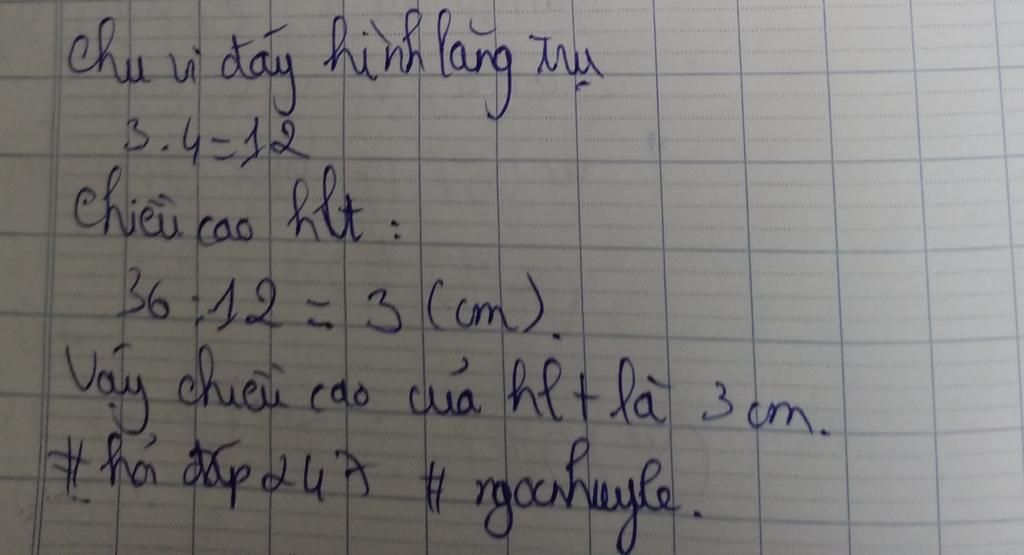 Chu vi đáy hình lăng trụ
3.4=12
Chiều cao hlt:
36:12 = 3 (cm).
Vậy chiều cao của hlt là 3 cm.
# hỏi đáp 247 # ngocnhuyle.